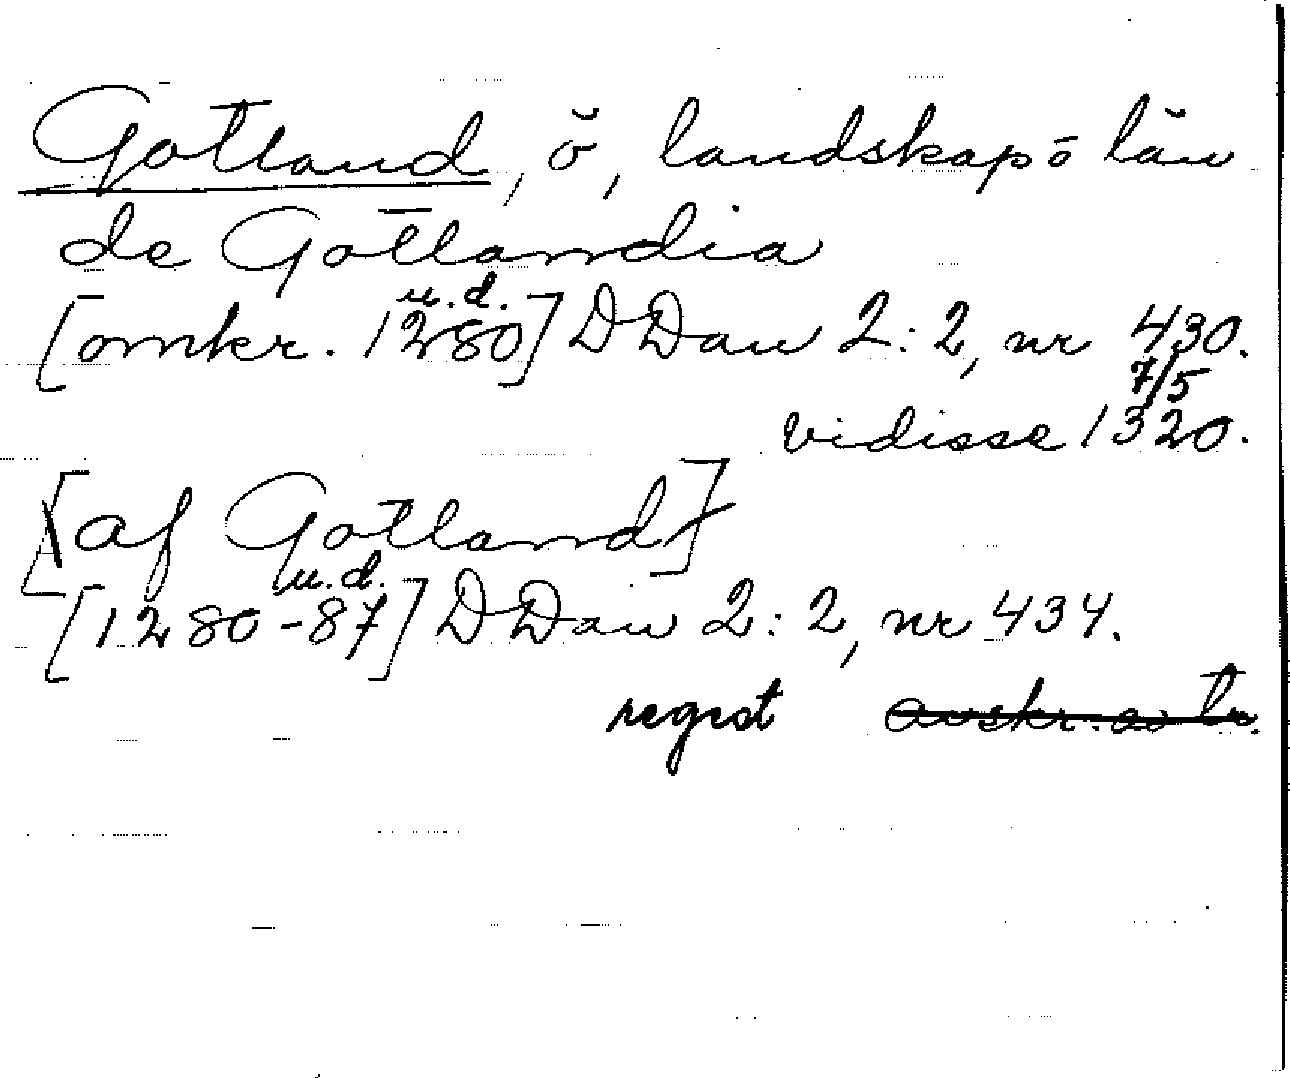 Gotland, ö, landskap o län
de Gotlandia
u.d.
[omkr. 1280] DDan 2:2, nr 430.
7/5
vidisse 1320.
[af Gotland]
u.d.
[1280-87] DDan 2:2, nr 434.
regest avskr. av tr.